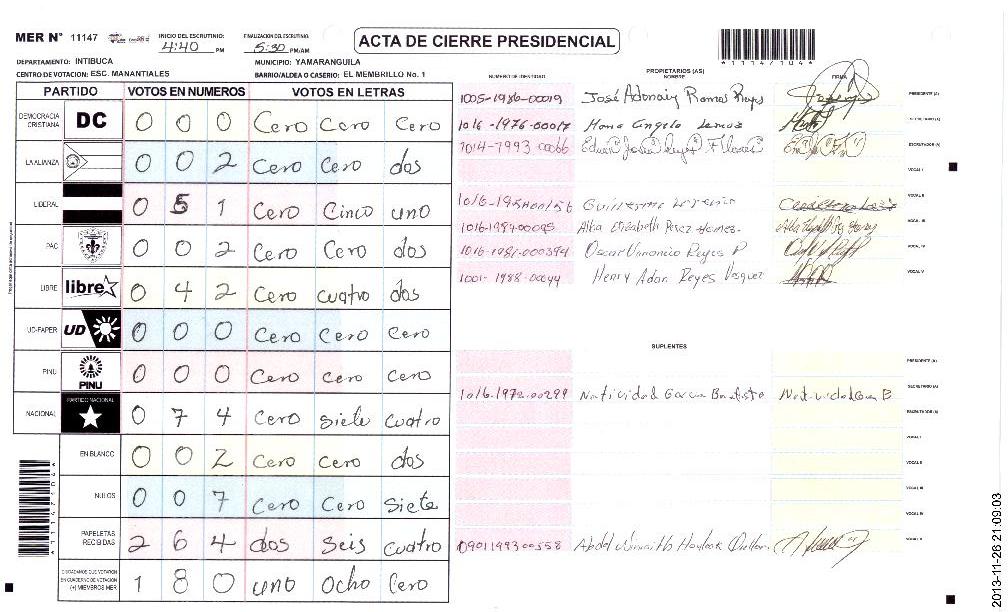 MER N° 11147 INICIO DEL ESCRUTINIO: 4:40 PM FINALIZACION DEL ESCRUTINIO: 5:30 PM/AM
ACTA DE CIERRE PRESIDENCIAL
*11147104*
DEPARTAMENTO: INTIBUCA MUNICIPIO: YAMARANGUILA
CENTRO DE VOTACION: ESC. MANANTIALES BARRIO/ALDEA O CASERIO: EL MEMBRILLO No. 1
PARTIDO VOTOS EN NUMEROS VOTOS EN LETRAS
DEMOCRACIA CRISTIANA DC 0 0 0 Cero Cero Cero
LA ALIANZA 0 0 2 Cero Cero dos
LIBERAL 0 5 1 Cero Cinco uno
PAC 0 0 2 Cero Cero dos
LIBRE libre 0 4 2 Cero cuatro dos
UD-FAPER UD 0 0 0 Cero Cero Cero
PINU PINU 0 0 0 Cero Cero Cero
NACIONAL PARTIDO NACIONAL 0 7 4 Cero siete cuatro
EN BLANCO 0 0 2 Cero Cero dos
NULOS 0 0 7 Cero Cero Siete
PAPELETAS RECIBIDAS 2 6 4 dos Seis cuatro
CIUDADANOS QUE VOTARON EN CUADERNO DE VOTACION (+) MIEMBROS MER 1 8 0 uno Ocho Cero
PROPIETARIOS (AS)
NUMERO DE IDENTIDAD NOMBRE FIRMA
1005-1986-00019 José Adonay Ramos Reyes PRESIDENTE (A)
1016-1976-00017 Angelo Lemus SECRETARIO (A)
ESCRUTADOR (A)
VOCAL I
Guillermo VOCAL II
Alba Elizabeth Perez VOCAL III
1016-1981-000394 Oscar Reyes P VOCAL IV
1001-1988-00044 Henry Adan Reyes Vasquez VOCAL V
SUPLENTES
PRESIDENTE (A)
1016-1972-00299 Natividad Garcia Bautista SECRETARIO (A)
ESCRUTADOR (A)
VOCAL I
VOCAL II
VOCAL III
VOCAL IV
0901199300558 VOCAL V
2013-11-26 21:09:03